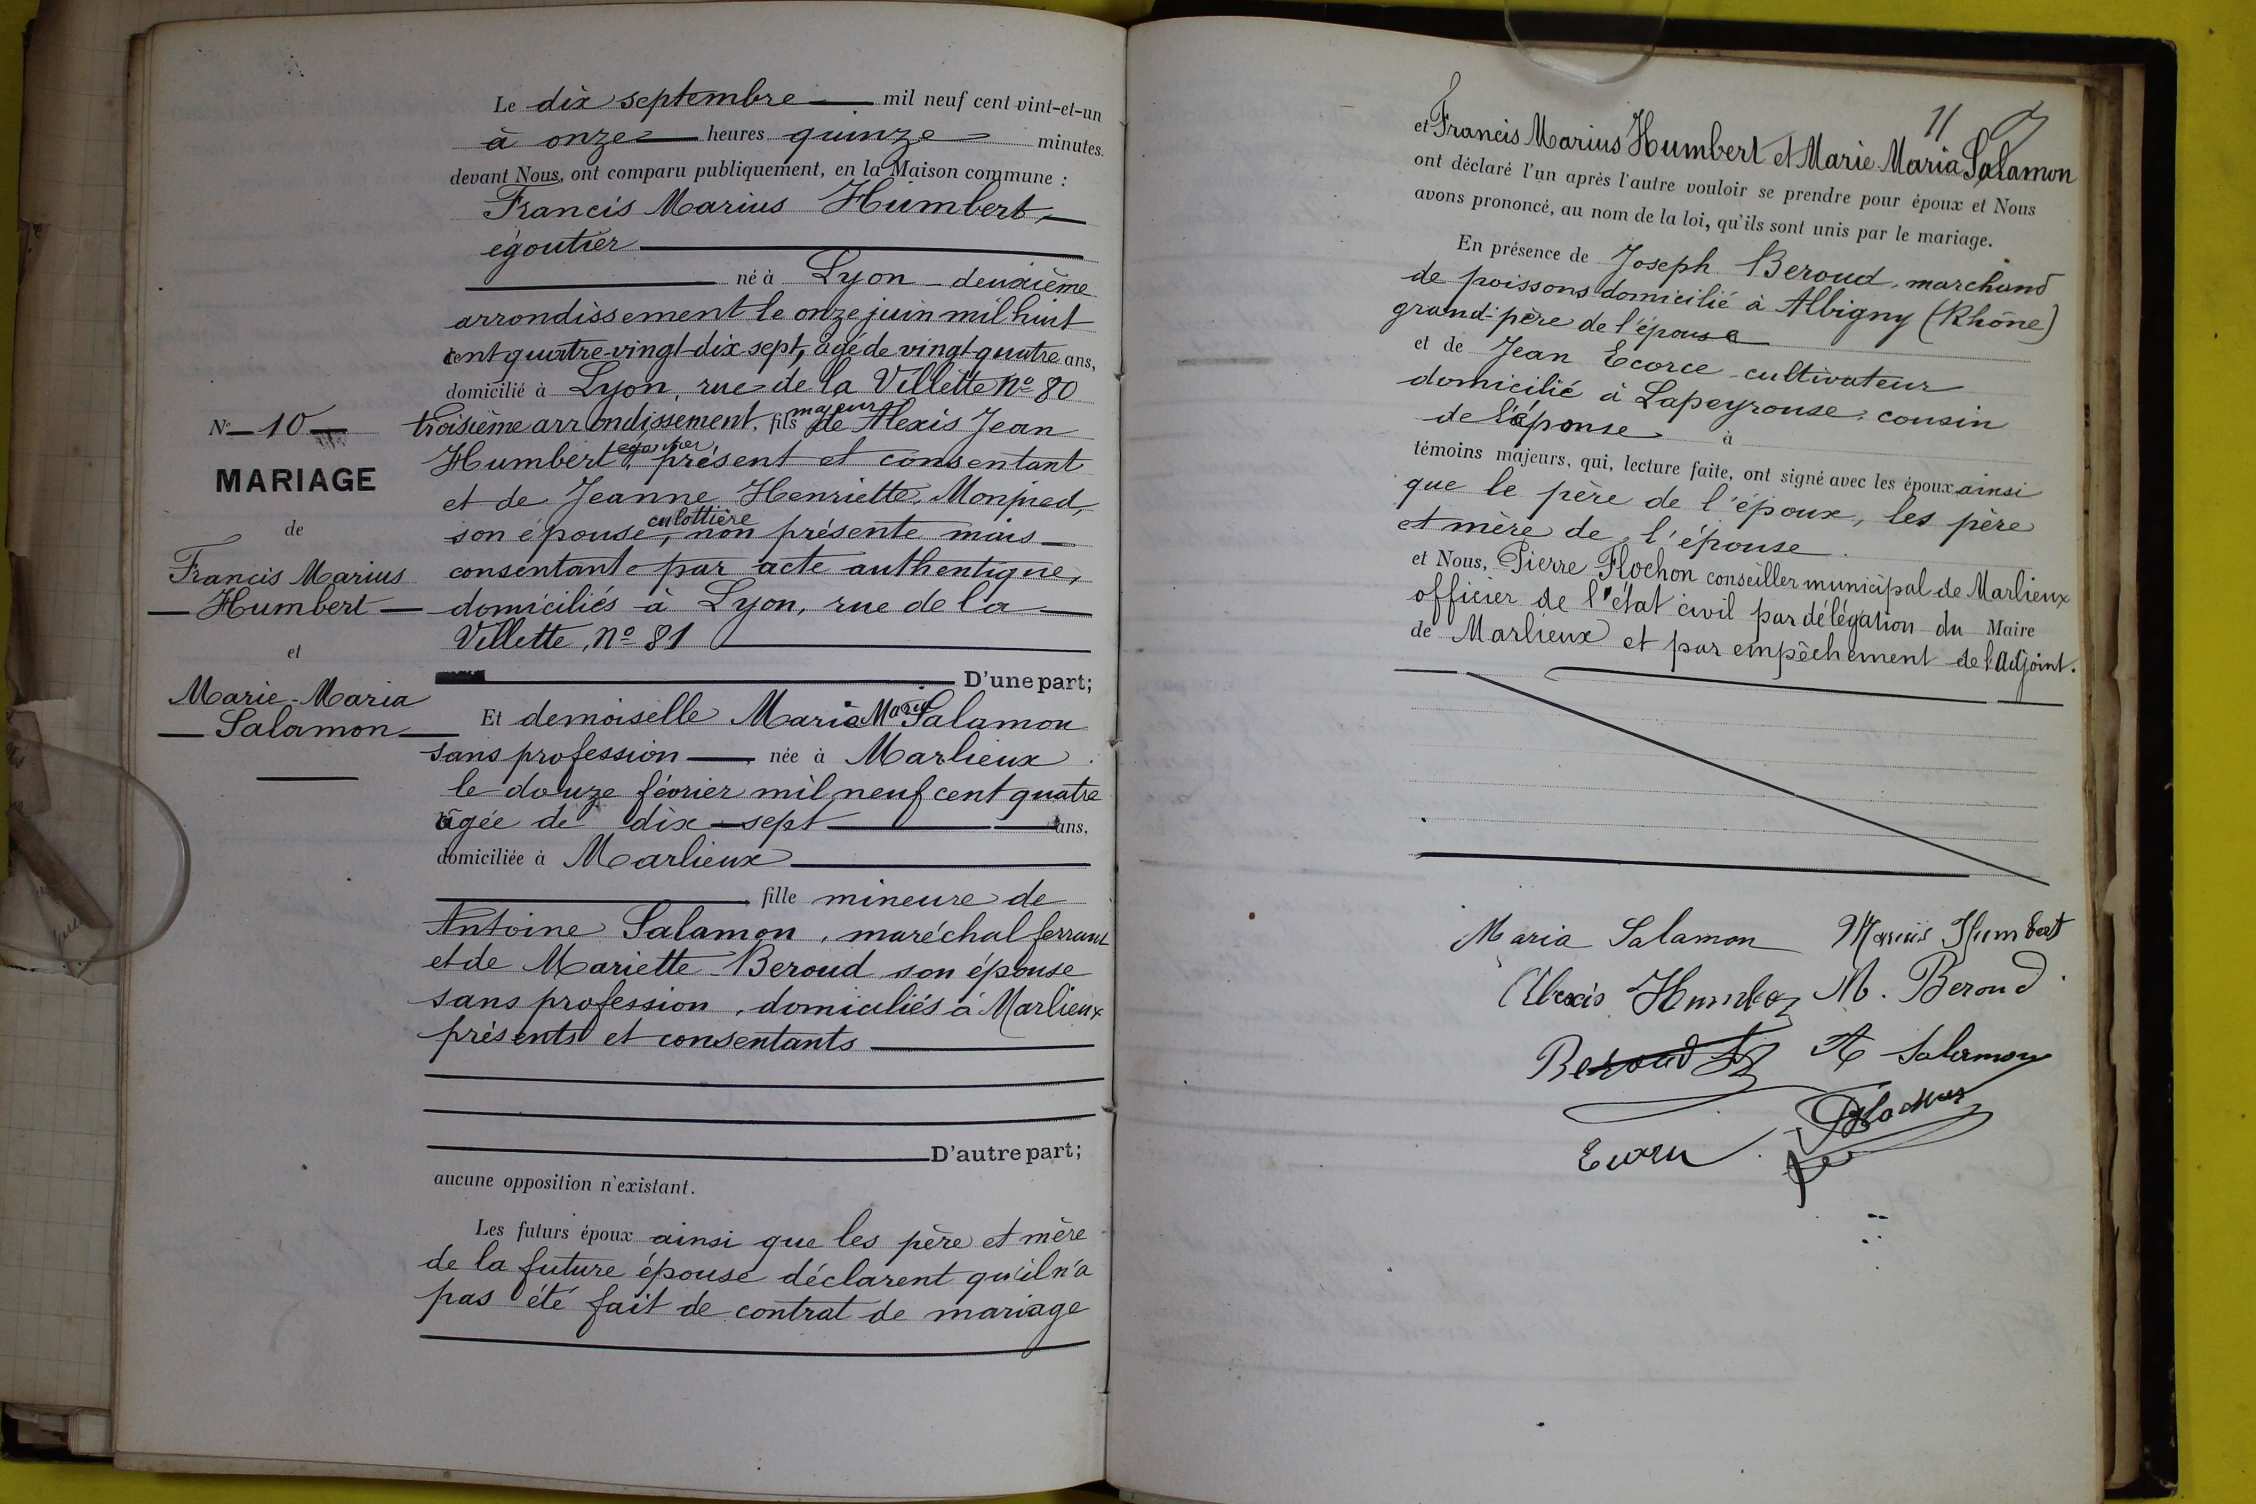 Le dix septembre mil neuf cent vint-et-un
à onze heures quinze minutes.
devant Nous, ont comparu publiquement, en la Maison commune :
Francis Marius Humbert,
égoutier
né à Lyon deuxième
arrondissement le onze juin mil huit
cent quatre-vingt-dix sept, âgé de vingt-quatre ans,
domicilié à Lyon, rue de la Villette No 80
troisième arrondissement, fils majeur de Alexis Jean
Humbert, égoutier, présent et consentant
et de Jeanne Henriette Monpied,
son épouse, culottière, non présente mais
consentante par acte authentique,
domiciliés à Lyon, rue de la
Villette, No 81
D'une part;
Et demoiselle Marie Maria Salamon
sans profession née à Marlieux
le douze février mil neuf cent quatre
âgée de dix-sept ans,
domiciliée à Marlieux
fille mineure de
Antoine Salamon, maréchal ferrant
et de Mariette Beroud son épouse
sans profession, domiciliés à Marlieux
présents et consentants
D'autre part;
aucune opposition n'existant.
Les futurs époux ainsi que les père et mère
de la future épouse déclarent qu'il n'a
pas été fait de contrat de mariage
No 10
MARIAGE
de
Francis Marius
Humbert
et
Marie-Maria
Salamon
11
et Francis Marius Humbert et Marie Maria Salamon
ont déclaré l'un après l'autre vouloir se prendre pour époux et Nous
avons prononcé, au nom de la loi, qu'ils sont unis par le mariage.
En présence de Joseph Beroud, marchand
de poissons domicilié à Albigny (Rhône)
grand-père de l'épouse
et de Jean Ecorce cultivateur
domicilié à Lapeyrouse, cousin
de l'épouse à
témoins majeurs, qui, lecture faite, ont signé avec les époux ainsi
que le père de l'époux, les père
et mère de l'épouse.
et Nous, Pierre Flochon conseiller municipal de Marlieux
officier de l'état civil par délégation du Maire
de Marlieux et par empêchement de l'Adjoint.
Maria Salamon Marius Humbert
Alexis Humbert M. Beroud
Beroud A Salamon